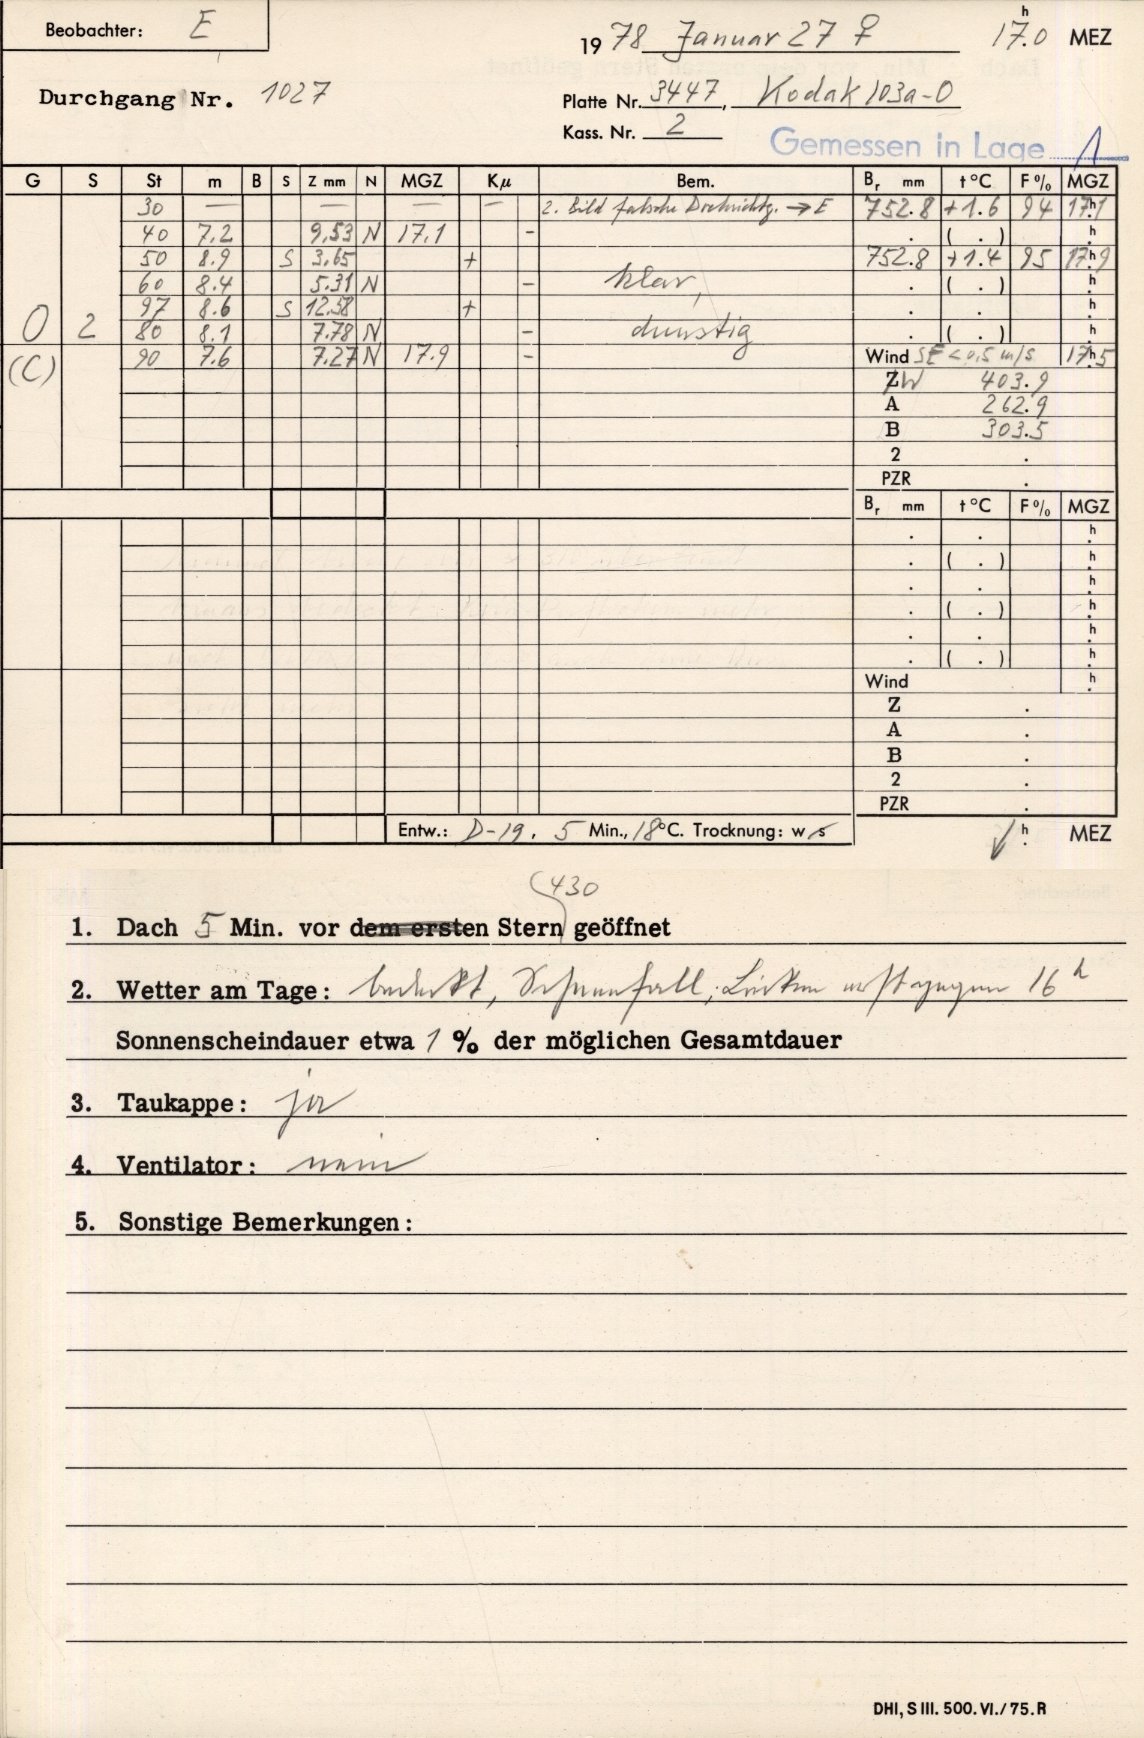 Beobachter: E
1978 Januar 27 ♀ 17.0 h MEZ
Durchgang Nr. 1027
Platte Nr. 3447, Kodak 103a-O
Kass. Nr. 2
Gemessen in Lage 1
G S St m B S Z mm N MGZ Kμ Bem. Br mm t °C F % MGZ
30 — — — — 2. Bild falsche Drehrichtg. → E 752.8 +1.6 94 17.1 h
40 7.2 9,53 N 17.1 - . ( . ) h
50 8.9 S 3,65 + 752.8 +1.4 95 17.9 h
60 8.4 5.31 N - klar, . ( . ) h
97 8.6 S 12.58 + . . h
O 2 80 8.1 7.78 N - dunstig . ( . ) h
(C) 90 7.6 7.27 N 17.9 - Wind SE < 0,5 m/s 17.5 h
Z W 403.9
A 262.9
B 303.5
2 .
PZR .
Br mm t °C F % MGZ
. . h
. ( . ) h
. . h
. ( . ) h
. . h
. ( . ) h
Wind h
Z .
A .
B .
2 .
PZR .
Entw.: D-19, 5 Min., 18 °C. Trocknung: w s h MEZ
430
1. Dach 5 Min. vor dem ersten Stern geöffnet
2. Wetter am Tage: bedeckt, Schneefall, Lücken erst gegen 16 h
Sonnenscheindauer etwa 1 % der möglichen Gesamtdauer
3. Taukappe: ja
4. Ventilator: nein
5. Sonstige Bemerkungen:
DHI, S III. 500. VI./75. R